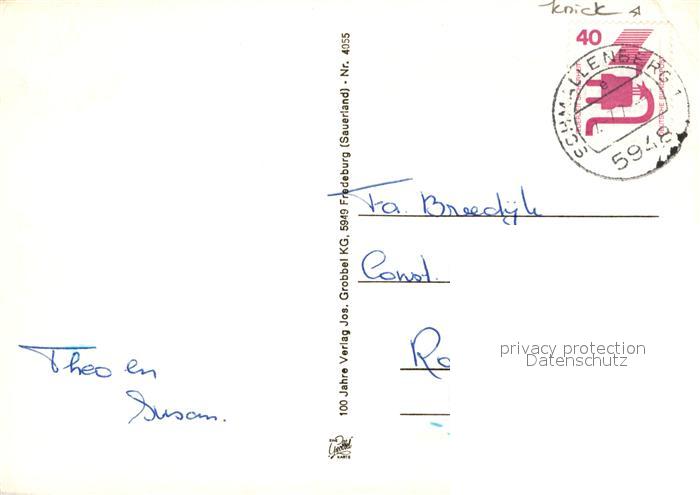 knick
40
SCHMALLENBERG 1
e
5948
100 Jahre Verlag Jos. Grobbel KG, 5949 Fredeburg (Sauerland) - Nr. 4055
Fa. Breedijk
Const.
Ro
privacy protection
Datenschutz
Theo en
Susan.
Grobbel
KARTE